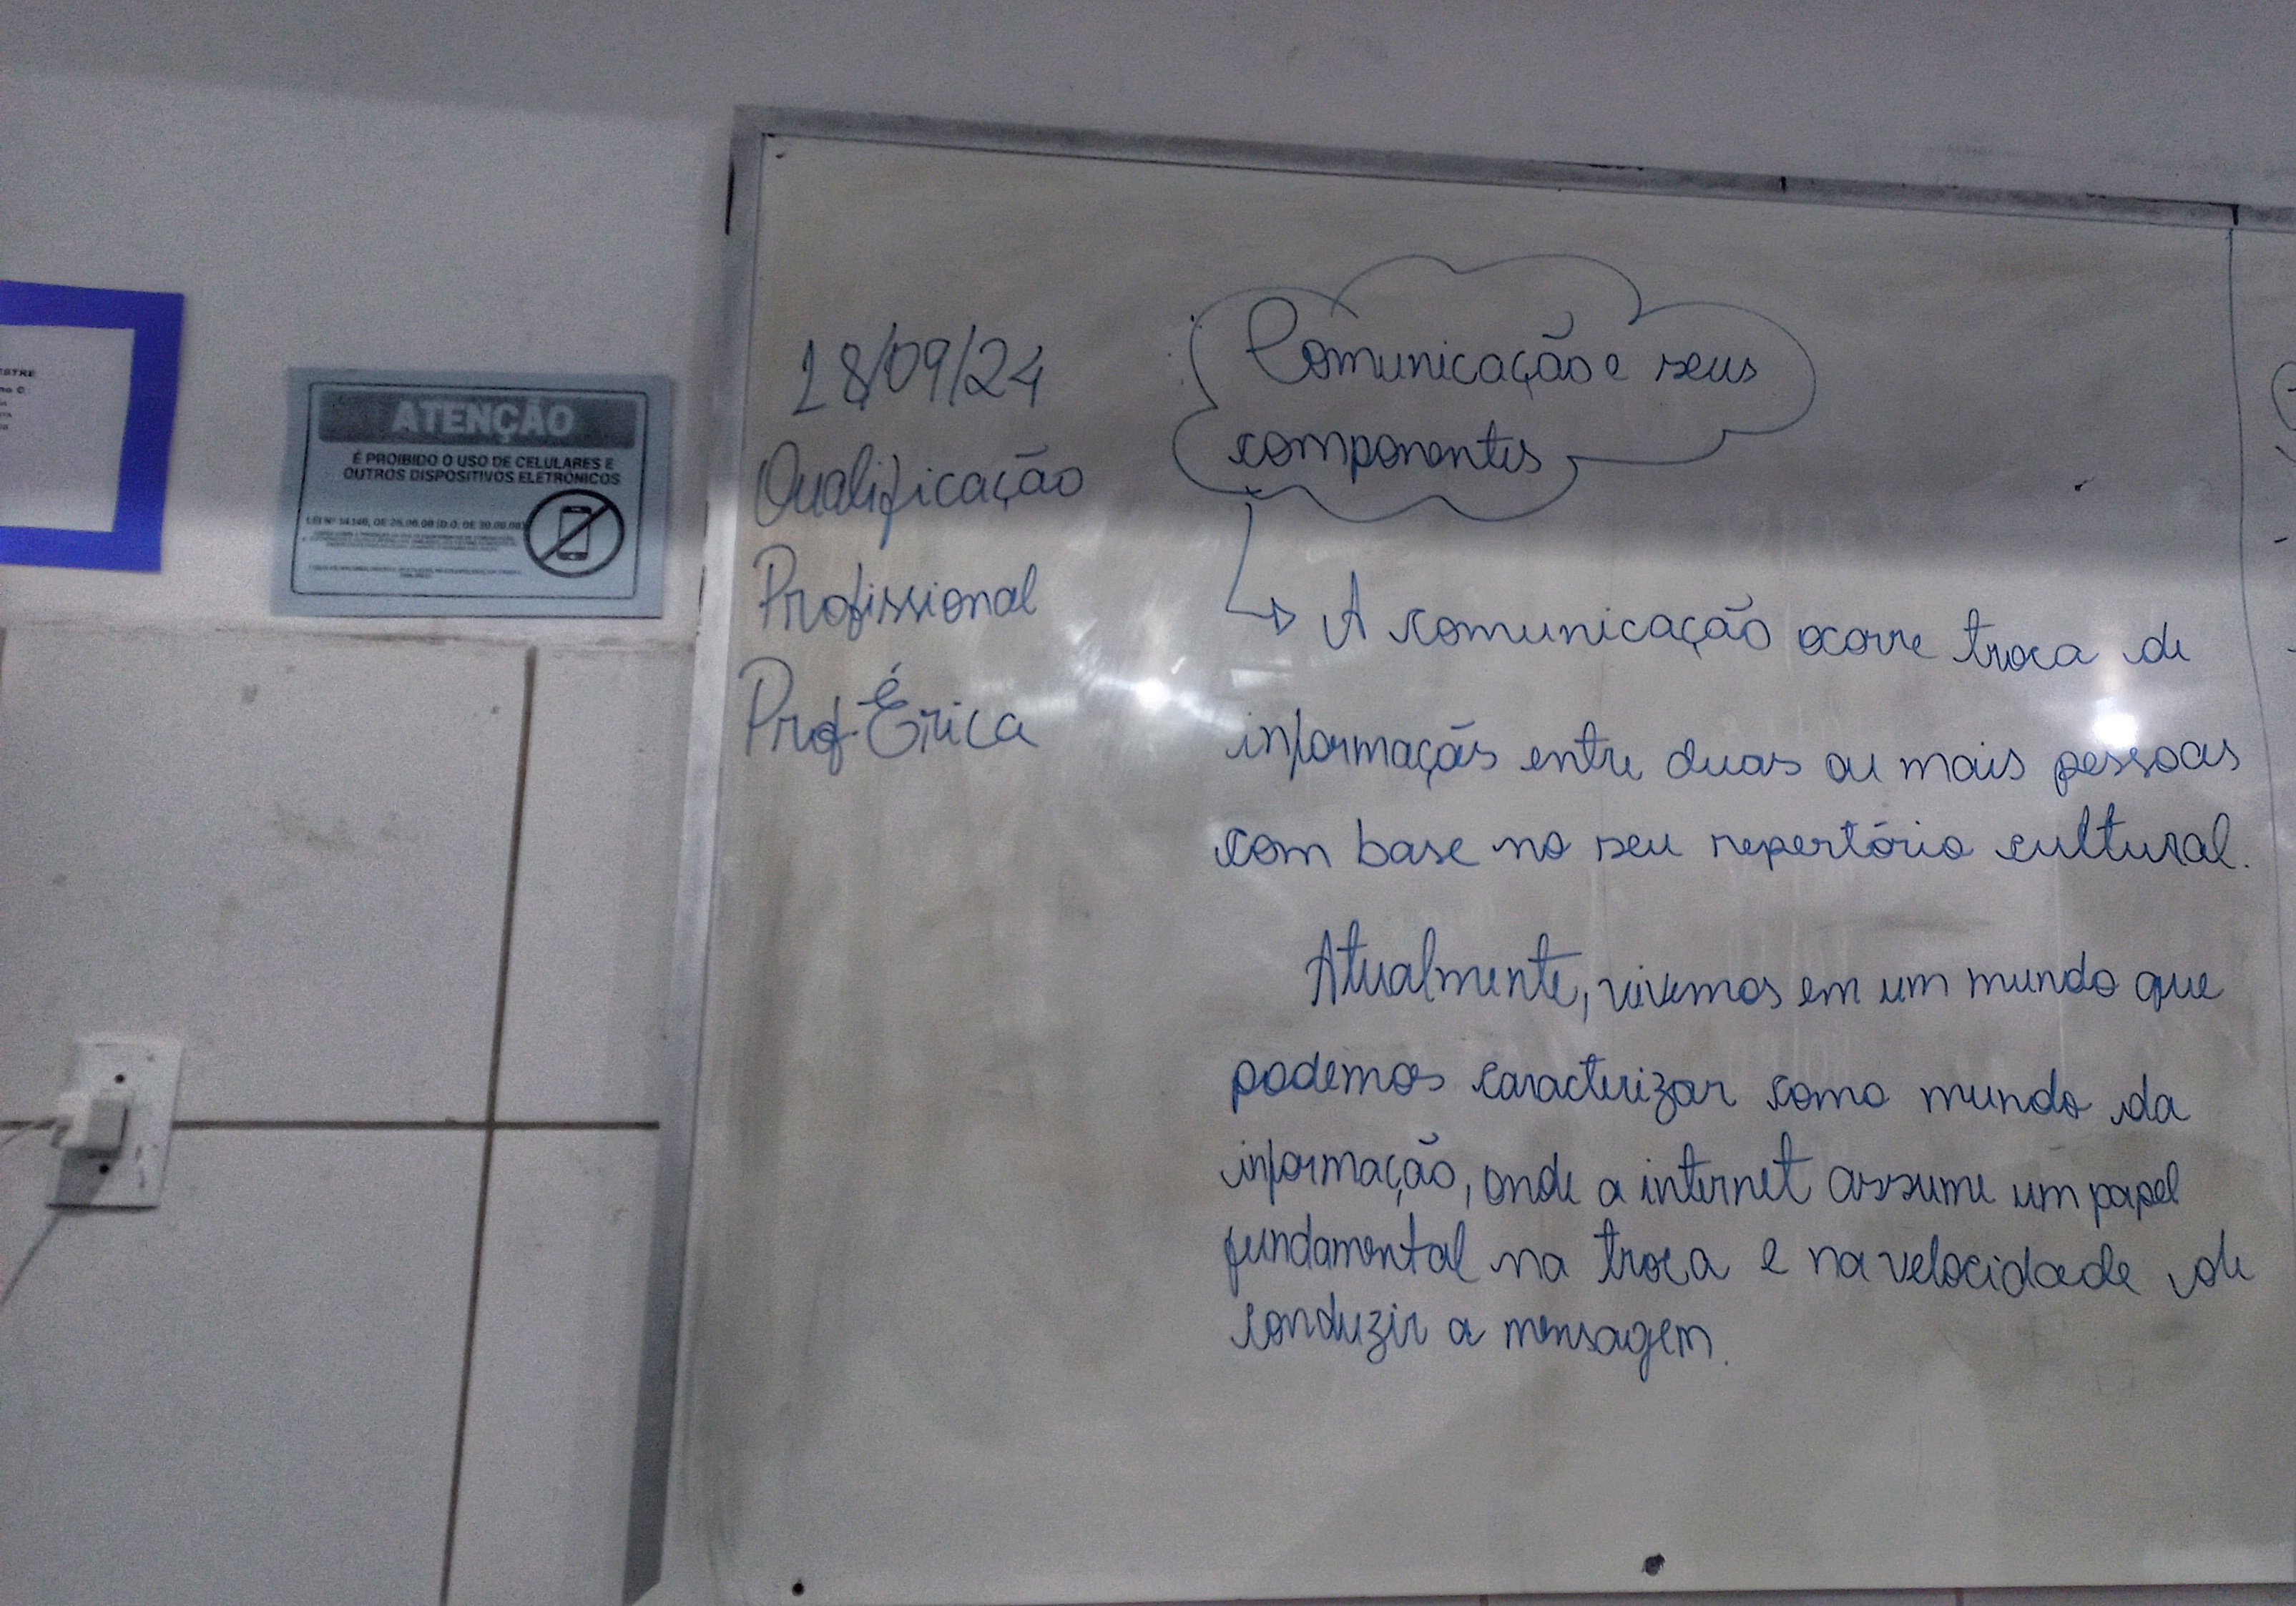 ATENÇÃO
É PROIBIDO O USO DE CELULARES E
OUTROS DISPOSITIVOS ELETRÔNICOS
18/09/24
Qualificação
Profissional
Prof. Érica
Comunicação e seus
componentes
A comunicação ocorre troca de
informaçãs entre duas ou mais pessoas
com base no seu repertório cultural.
Atualmente, vivemos em um mundo que
podemos caracterizar como mundo da
informação, onde a internet assume um papel
fundamental na troca e na velocidade de
conduzir a mensagem.